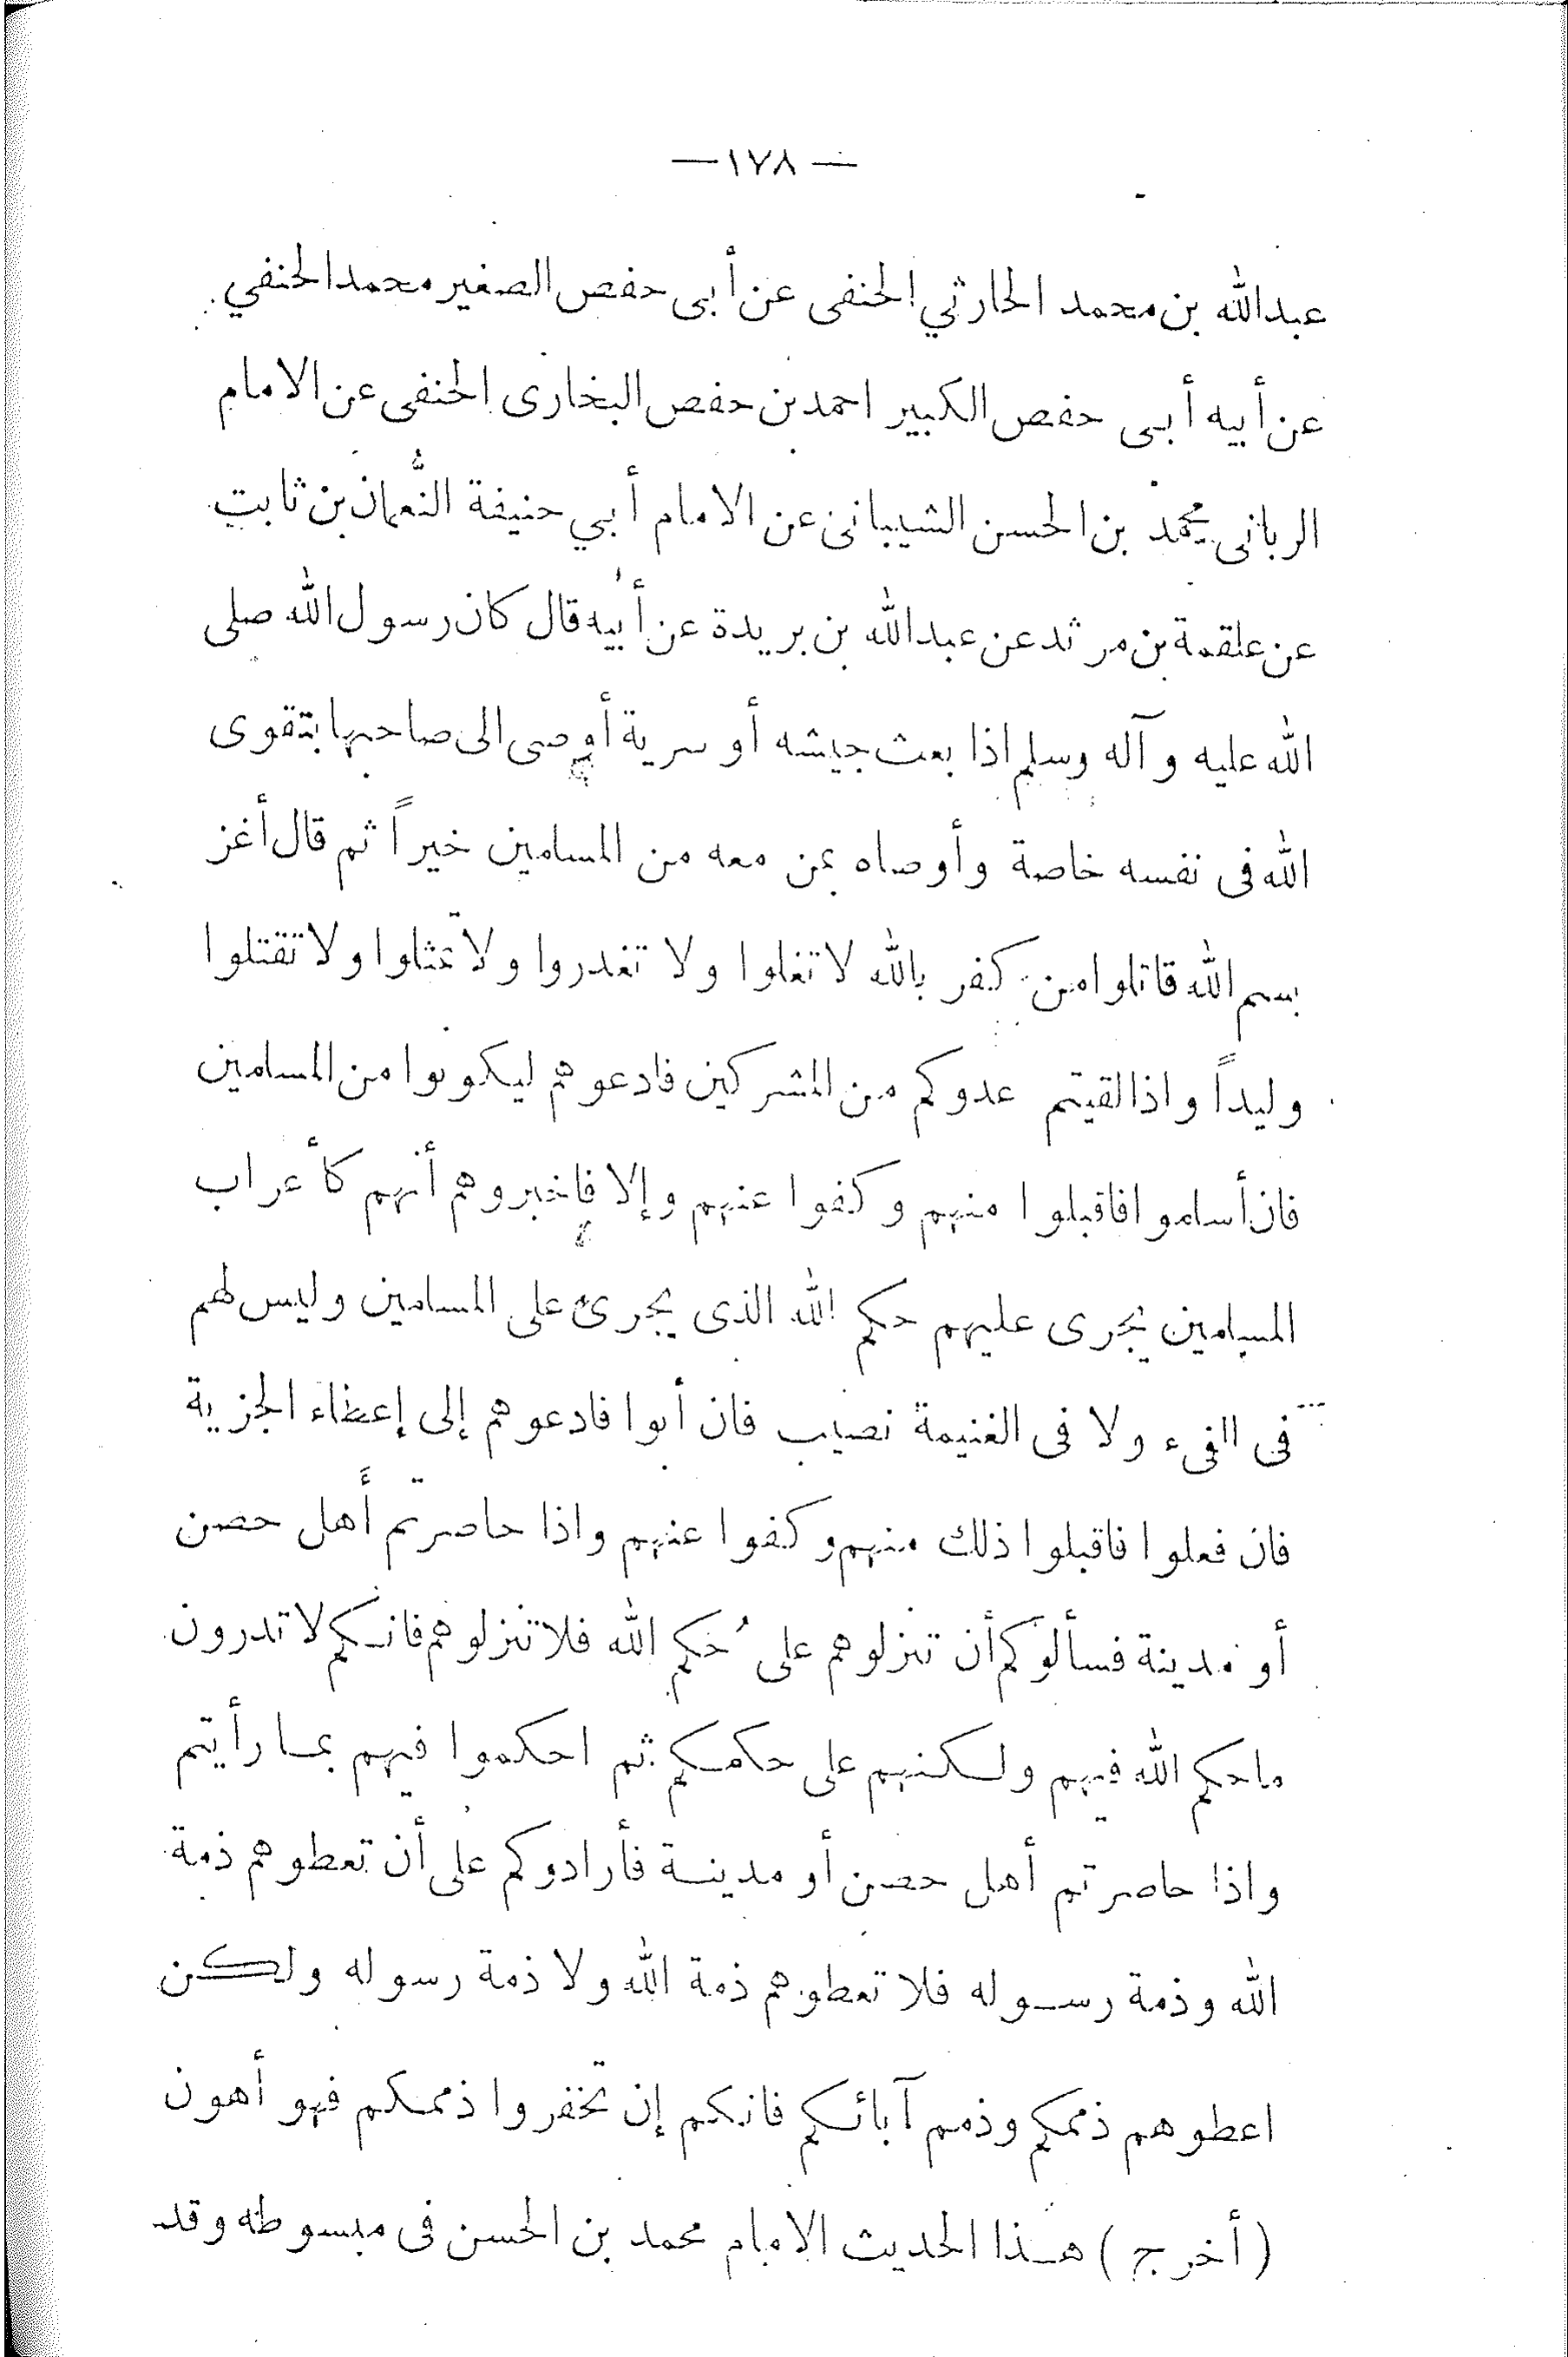 — ١٧٨ —
عبدالله بن محمد الحارثي الحنفى عن أبى حفص الصغير محمد الحنفي
عن أبيه أبى حفص الكبير احمد بن حفص البخارى الحنفى عن الامام
الربانى محمد بن الحسن الشيبانى عن الامام أبي حنيفة النُّعمان بن ثابت
عن علقمة بن مرثد عن عبدالله بن بريدة عن أبيه قال كان رسول الله صلى
الله عليه وآله وسلم اذا بعث جيشه أو سرية أوصى الى صاحبها بتقوى
الله فى نفسه خاصة وأوصاه بمن معه من المسلمين خيراً ثم قال أغز
بسم الله قاتلوا من كفر بالله لا تغلوا ولا تغدروا ولا تمثلوا ولا تقتلوا
وليداً واذا لقيتم عدوكم من المشركين فادعوهم ليكونوا من المسلمين
فان أسلموا فاقبلوا منهم وكفوا عنهم وإلا فاخبروهم أنهم كأعراب
المسلمين يجرى عليهم حكم الله الذى يجرى على المسلمين وليس لهم
فى الفىء ولا فى الغنيمة نصيب فان أبوا فادعوهم إلى إعطاء الجزية
فان فعلوا فاقبلوا ذلك منهم وكفوا عنهم واذا حاصرتم أهل حصن
أو مدينة فسألوكم أن تنزلوهم على حُكم الله فلا تنزلوهم فانكم لا تدرون
ما حكم الله فيهم ولكنهم على حكمكم ثم احكموا فيهم بما رأيتم
واذا حاصرتم أهل حصن أو مدينة فأرادوكم على أن تعطوهم ذمة
الله وذمة رسوله فلا تعطوهم ذمة الله ولا ذمة رسوله ولكن
اعطوهم ذممكم وذمم آبائكم فانكم إن تخفروا ذممكم فهو أهون
(أخرج) هذا الحديث الامام محمد بن الحسن فى مبسوطه وقد